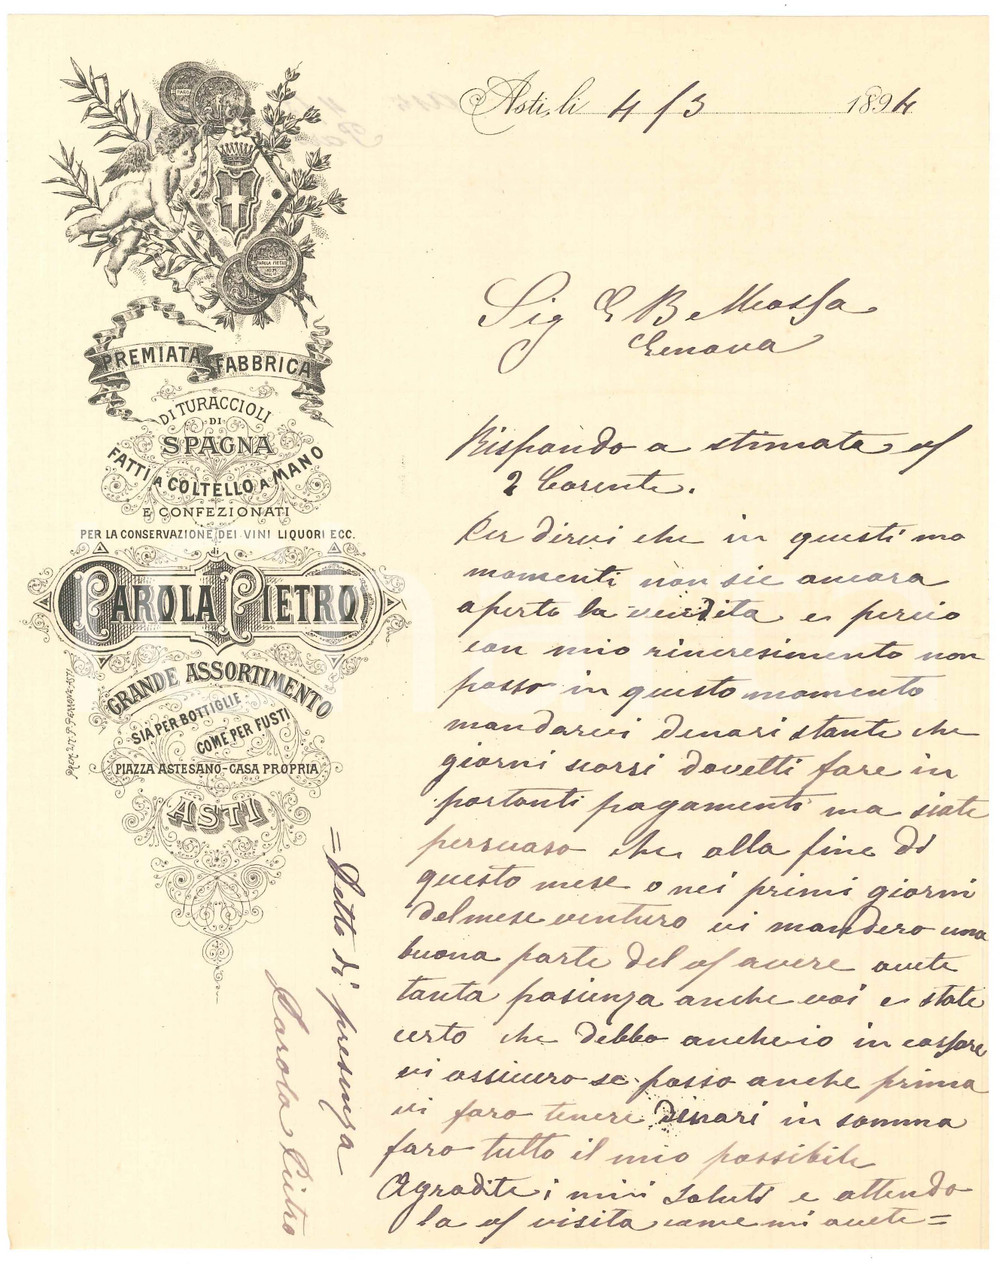 Asti, li 4/3 1894
PREMIATA FABBRICA
DI TURACCIOLI
DI
SPAGNA
FATTI A COLTELLO A MANO
E CONFEZIONATI
PER LA CONSERVAZIONE DEI VINI LIQUORI ECC.
di
PAROLA PIETRO
GRANDE ASSORTIMENTO
SIA PER BOTTIGLIE
COME PER FUSTI
PIAZZA ASTESANO - CASA PROPRIA
ASTI
Sig G B Mossa
Genova
Rispondo a stimata vs
2 Corente.
Per dirvi che in questi mo
momenti non sie ancora
aperto la vendita e percio
con mio rincresimento non
posso in questo momento
mandarvi denari stante che
giorni scorsi dovetti fare in
portanti pagamenti ma siate
persuaso che alla fine di
questo mese o nei primi giorni
del mese venturo vi mandero una
buona parte del vs avere avete
tanta pasienza anche voi e state
certo che debbo anche io in cassare
vi assicuro se posso anche prima
vi faro tenere denari in somma
faro tutto il mio possibile
Agradite i miei saluti e attendo
la vs visita come mi avete =
= Detto di presenza
Parola Pietro